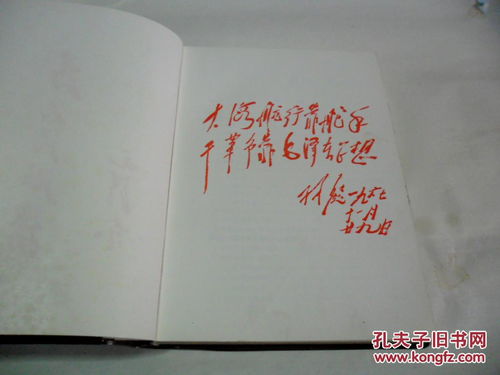 大海航行靠舵手
干革命靠毛泽东思想
林彪一九六七
十一月
廿九日
孔夫子旧书网
www.kongfz.com